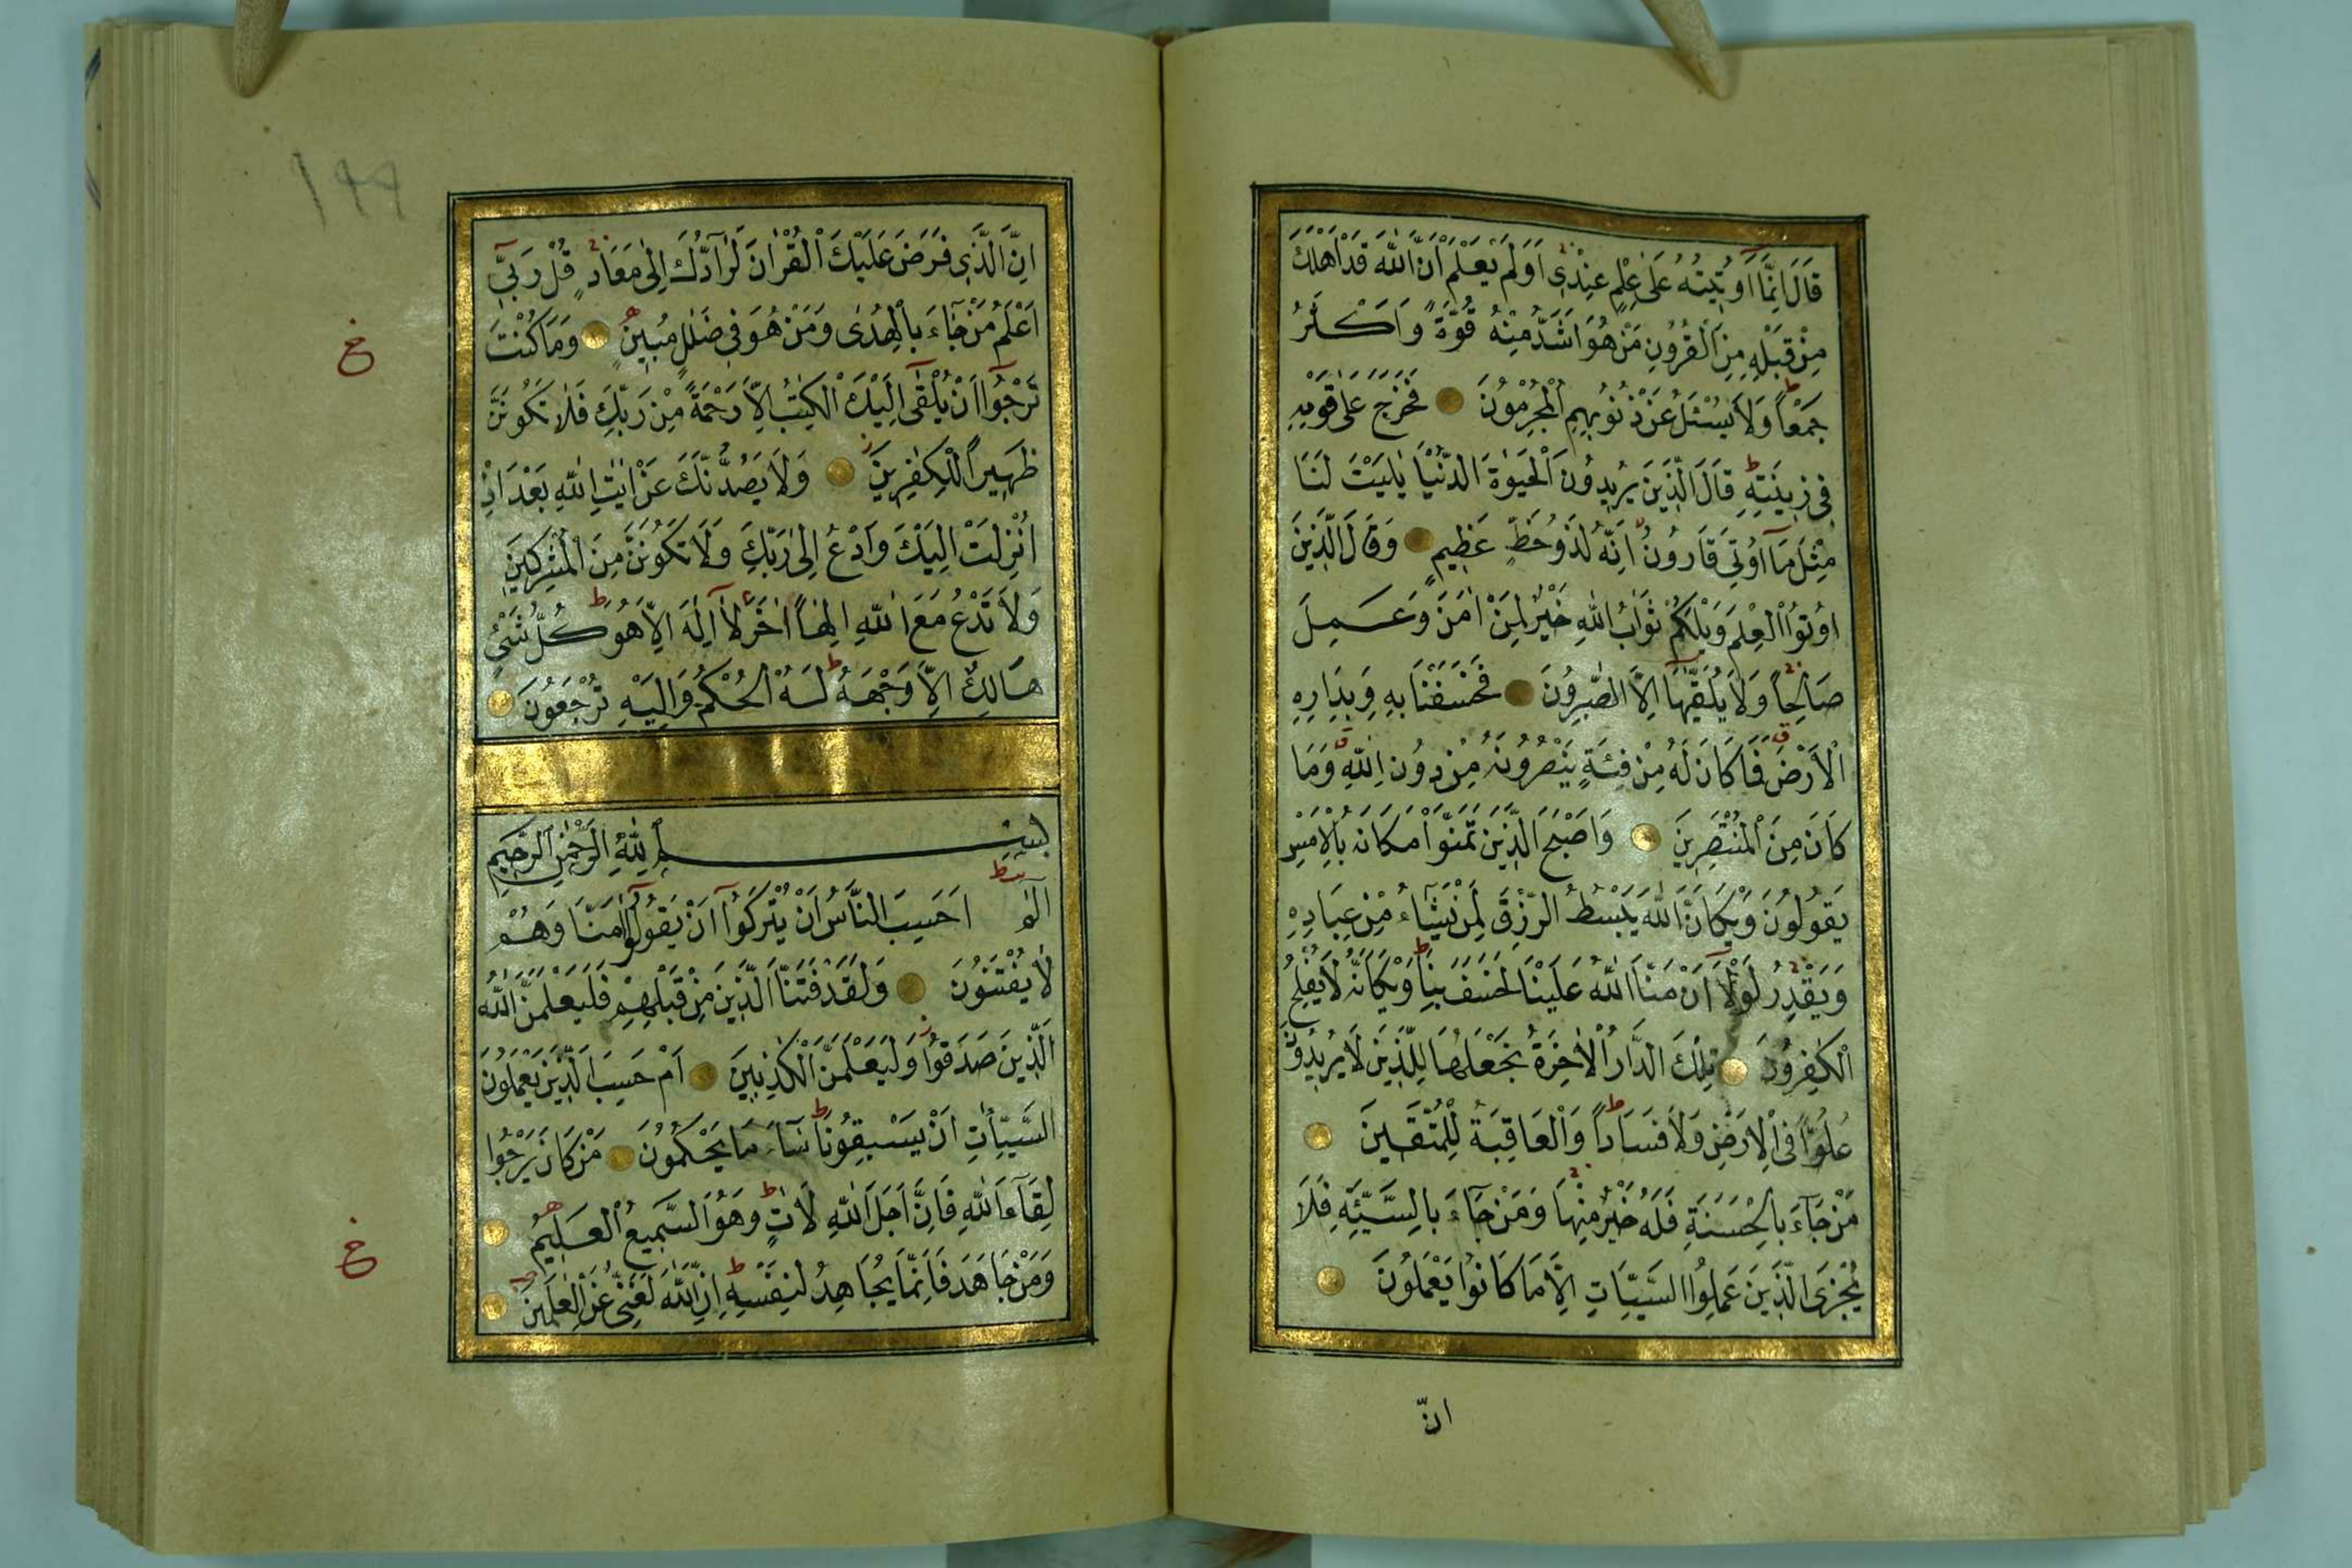 قَالَ اِنَّمَٓا اُو۫تِيتُهُ عَلٰى عِلْمٍ عِنْدِى اَوَلَمْ يَعْلَمْ اَنَّ اللّٰهَ قَدْ اَهْلَكَ
مِنْ قَبْلِهِ مِنَ الْقُرُونِ مَنْ هُوَ اَشَدُّ مِنْهُ قُوَّةً وَاَكْثَرُ
جَمْعاً وَلَا يُسْئَلُ عَنْ ذُنُوبِهِمِ الْمُجْرِمُونَ فَخَرَجَ عَلٰى قَوْمِهِ
فِى زِينَتِهِ قَالَ الَّذِينَ يُرِيدُونَ الْحَيٰوةَ الدُّنْيَا يٰلَيْتَ لَنَا
مِثْلَ مَٓا اُوتِىَ قَارُونُ اِنَّهُ لَذُو حَظٍّ عَظِيمٍ وَقَالَ الَّذِينَ
اُوتُوا الْعِلْمَ وَيْلَكُمْ ثَوَابُ اللّٰهِ خَيْرٌ لِمَنْ اٰمَنَ وَعَمِلَ
صَالِحاً وَلَا يُلَقّٰيهَٓا اِلَّا الصّٰبِرُونَ فَخَسَفْنَا بِهِ وَبِدَارِهِ
الْاَرْضَ فَمَا كَانَ لَهُ مِنْ فِئَةٍ يَنْصُرُونَهُ مِنْ دُونِ اللّٰهِ وَمَا
كَانَ مِنَ الْمُنْتَصِرِينَ وَاَصْبَحَ الَّذِينَ تَمَنَّوْا مَكَانَهُ بِالْاَمْسِ
يَقُولُونَ وَيْكَاَنَّ اللّٰهَ يَبْسُطُ الرِّزْقَ لِمَنْ يَشَٓاءُ مِنْ عِبَادِهِ
وَيَقْدِرُ لَوْلَٓا اَنْ مَنَّ اللّٰهُ عَلَيْنَا لَخَسَفَ بِنَا وَيْكَاَنَّهُ لَا يُفْلِحُ
الْكٰفِرُونَ تِلْكَ الدَّارُ الْاٰخِرَةُ نَجْعَلُهَا لِلَّذِينَ لَا يُرِيدُونَ
عُلُوًّا فِى الْاَرْضِ وَلَا فَسَاداً وَالْعَاقِبَةُ لِلْمُتَّقِينَ
مَنْ جَٓاءَ بِالْحَسَنَةِ فَلَهُ خَيْرٌ مِنْهَا وَمَنْ جَٓاءَ بِالسَّيِّئَةِ فَلَا
يُجْزَى الَّذِينَ عَمِلُوا السَّيِّاٰتِ اِلَّا مَا كَانُوا يَعْمَلُونَ
انّ
١٩٩
اِنَّ الَّذِى فَرَضَ عَلَيْكَ الْقُرْاٰنَ لَرَٓادُّكَ اِلٰى مَعَادٍ قُلْ رَبِّٓى
اَعْلَمُ مَنْ جَٓاءَ بِالْهُدٰى وَمَنْ هُوَ فِى ضَلٰلٍ مُبِينٍ وَمَا كُنْتَ
تَرْجُٓوا اَنْ يُلْقٰٓى اِلَيْكَ الْكِتٰبُ اِلَّا رَحْمَةً مِنْ رَبِّكَ فَلَا تَكُونَنَّ
ظَهِيراً لِلْكٰفِرِينَ وَلَا يَصُدُّنَّكَ عَنْ اٰيٰتِ اللّٰهِ بَعْدَ اِذْ
اُنْزِلَتْ اِلَيْكَ وَادْعُ اِلٰى رَبِّكَ وَلَا تَكُونَنَّ مِنَ الْمُشْرِكِينَ
وَلَا تَدْعُ مَعَ اللّٰهِ اِلٰهاً اٰخَرَ لَٓا اِلٰهَ اِلَّا هُوَ كُلُّ شَىْءٍ
هَالِكٌ اِلَّا وَجْهَهُ لَهُ الْحُكْمُ وَاِلَيْهِ تُرْجَعُونَ
بِسْمِ اللّٰهِ الرَّحْمٰنِ الرَّحِيمِ
الٓمٓ اَحَسِبَ النَّاسُ اَنْ يُتْرَكُٓوا اَنْ يَقُولُٓوا اٰمَنَّا وَهُمْ
لَا يُفْتَنُونَ وَلَقَدْ فَتَنَّا الَّذِينَ مِنْ قَبْلِهِمْ فَلَيَعْلَمَنَّ اللّٰهُ
الَّذِينَ صَدَقُوا وَلَيَعْلَمَنَّ الْكٰذِبِينَ اَمْ حَسِبَ الَّذِينَ يَعْمَلُونَ
السَّيِّاٰتِ اَنْ يَسْبِقُونَا سَٓاءَ مَا يَحْكُمُونَ مَنْ كَانَ يَرْجُوا
لِقَٓاءَ اللّٰهِ فَاِنَّ اَجَلَ اللّٰهِ لَاٰتٍ وَهُوَ السَّمِيعُ الْعَلِيمُ
وَمَنْ جَاهَدَ فَاِنَّمَا يُجَاهِدُ لِنَفْسِهِ اِنَّ اللّٰهَ لَغَنِىٌّ عَنِ الْعٰلَمِينَ